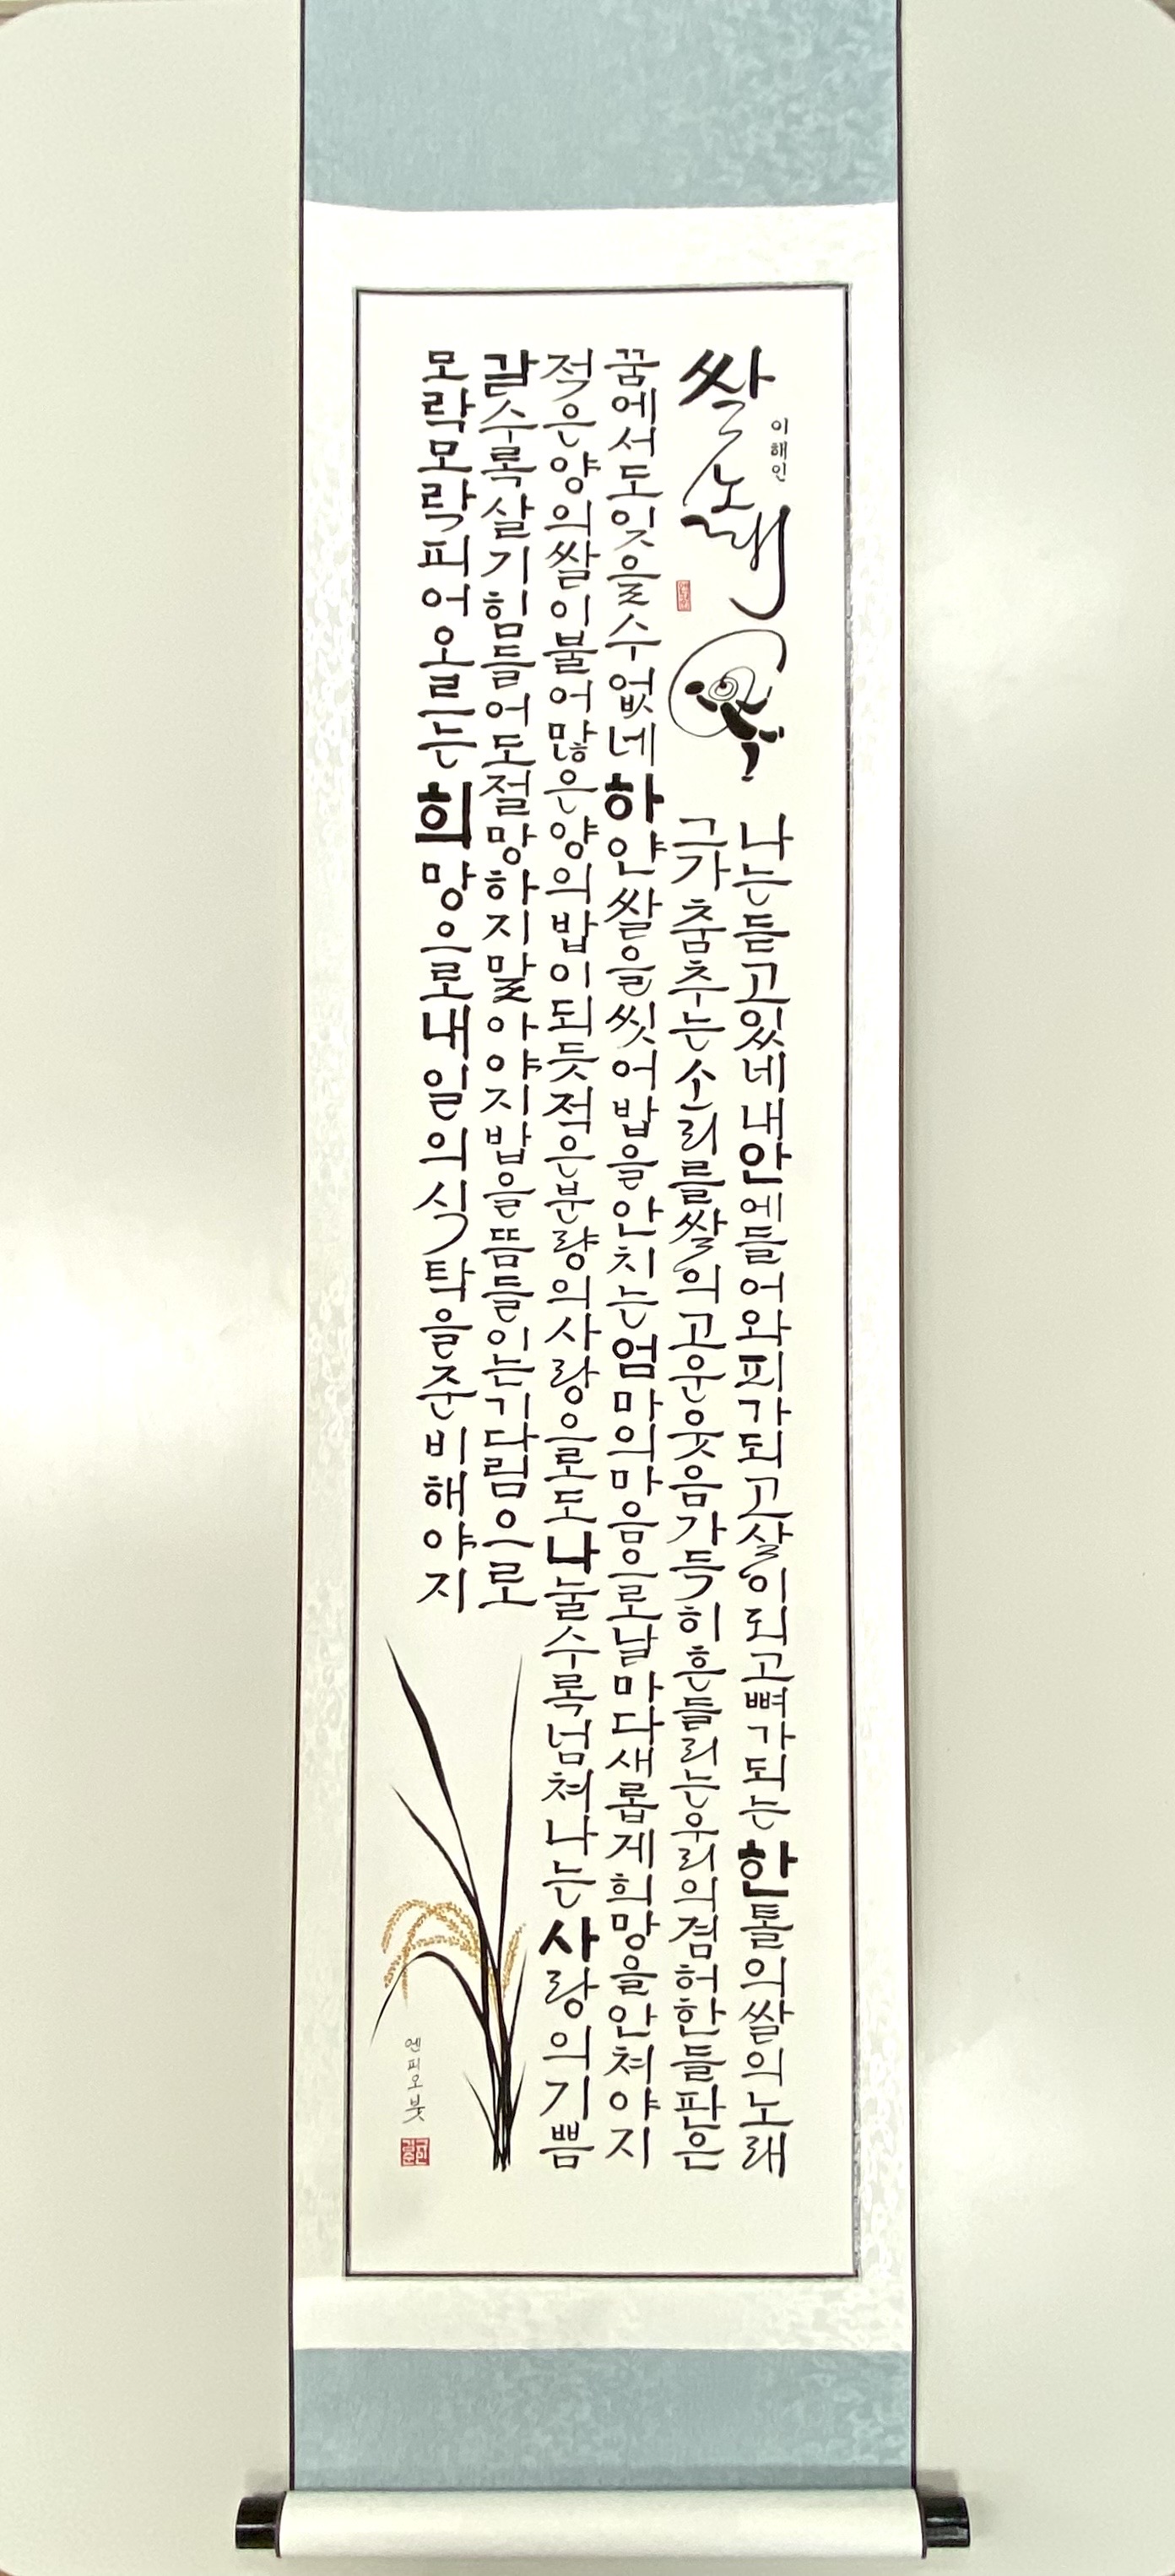 쌀노래
이해인
나는듣고있네내안에들어와피가되고살이되고뼈가되는한톨의쌀의노래
그가춤추는소리를쌀의고운웃음가득히흔들리는우리의겸허한들판은
꿈에서도잊을수없네하얀쌀을씻어밥을안치는엄마의마음으로날마다새롭게희망을안쳐야지
적은양의쌀이불어많은양의밥이되듯적은분량의사랑으로도나눌수록넘쳐나는사랑의기쁨
갈수록살기힘들어도절망하지말아야지밥을뜸들이는기다림으로
모락모락피어오르는희망으로내일의식탁을준비해야지
엔피오붓